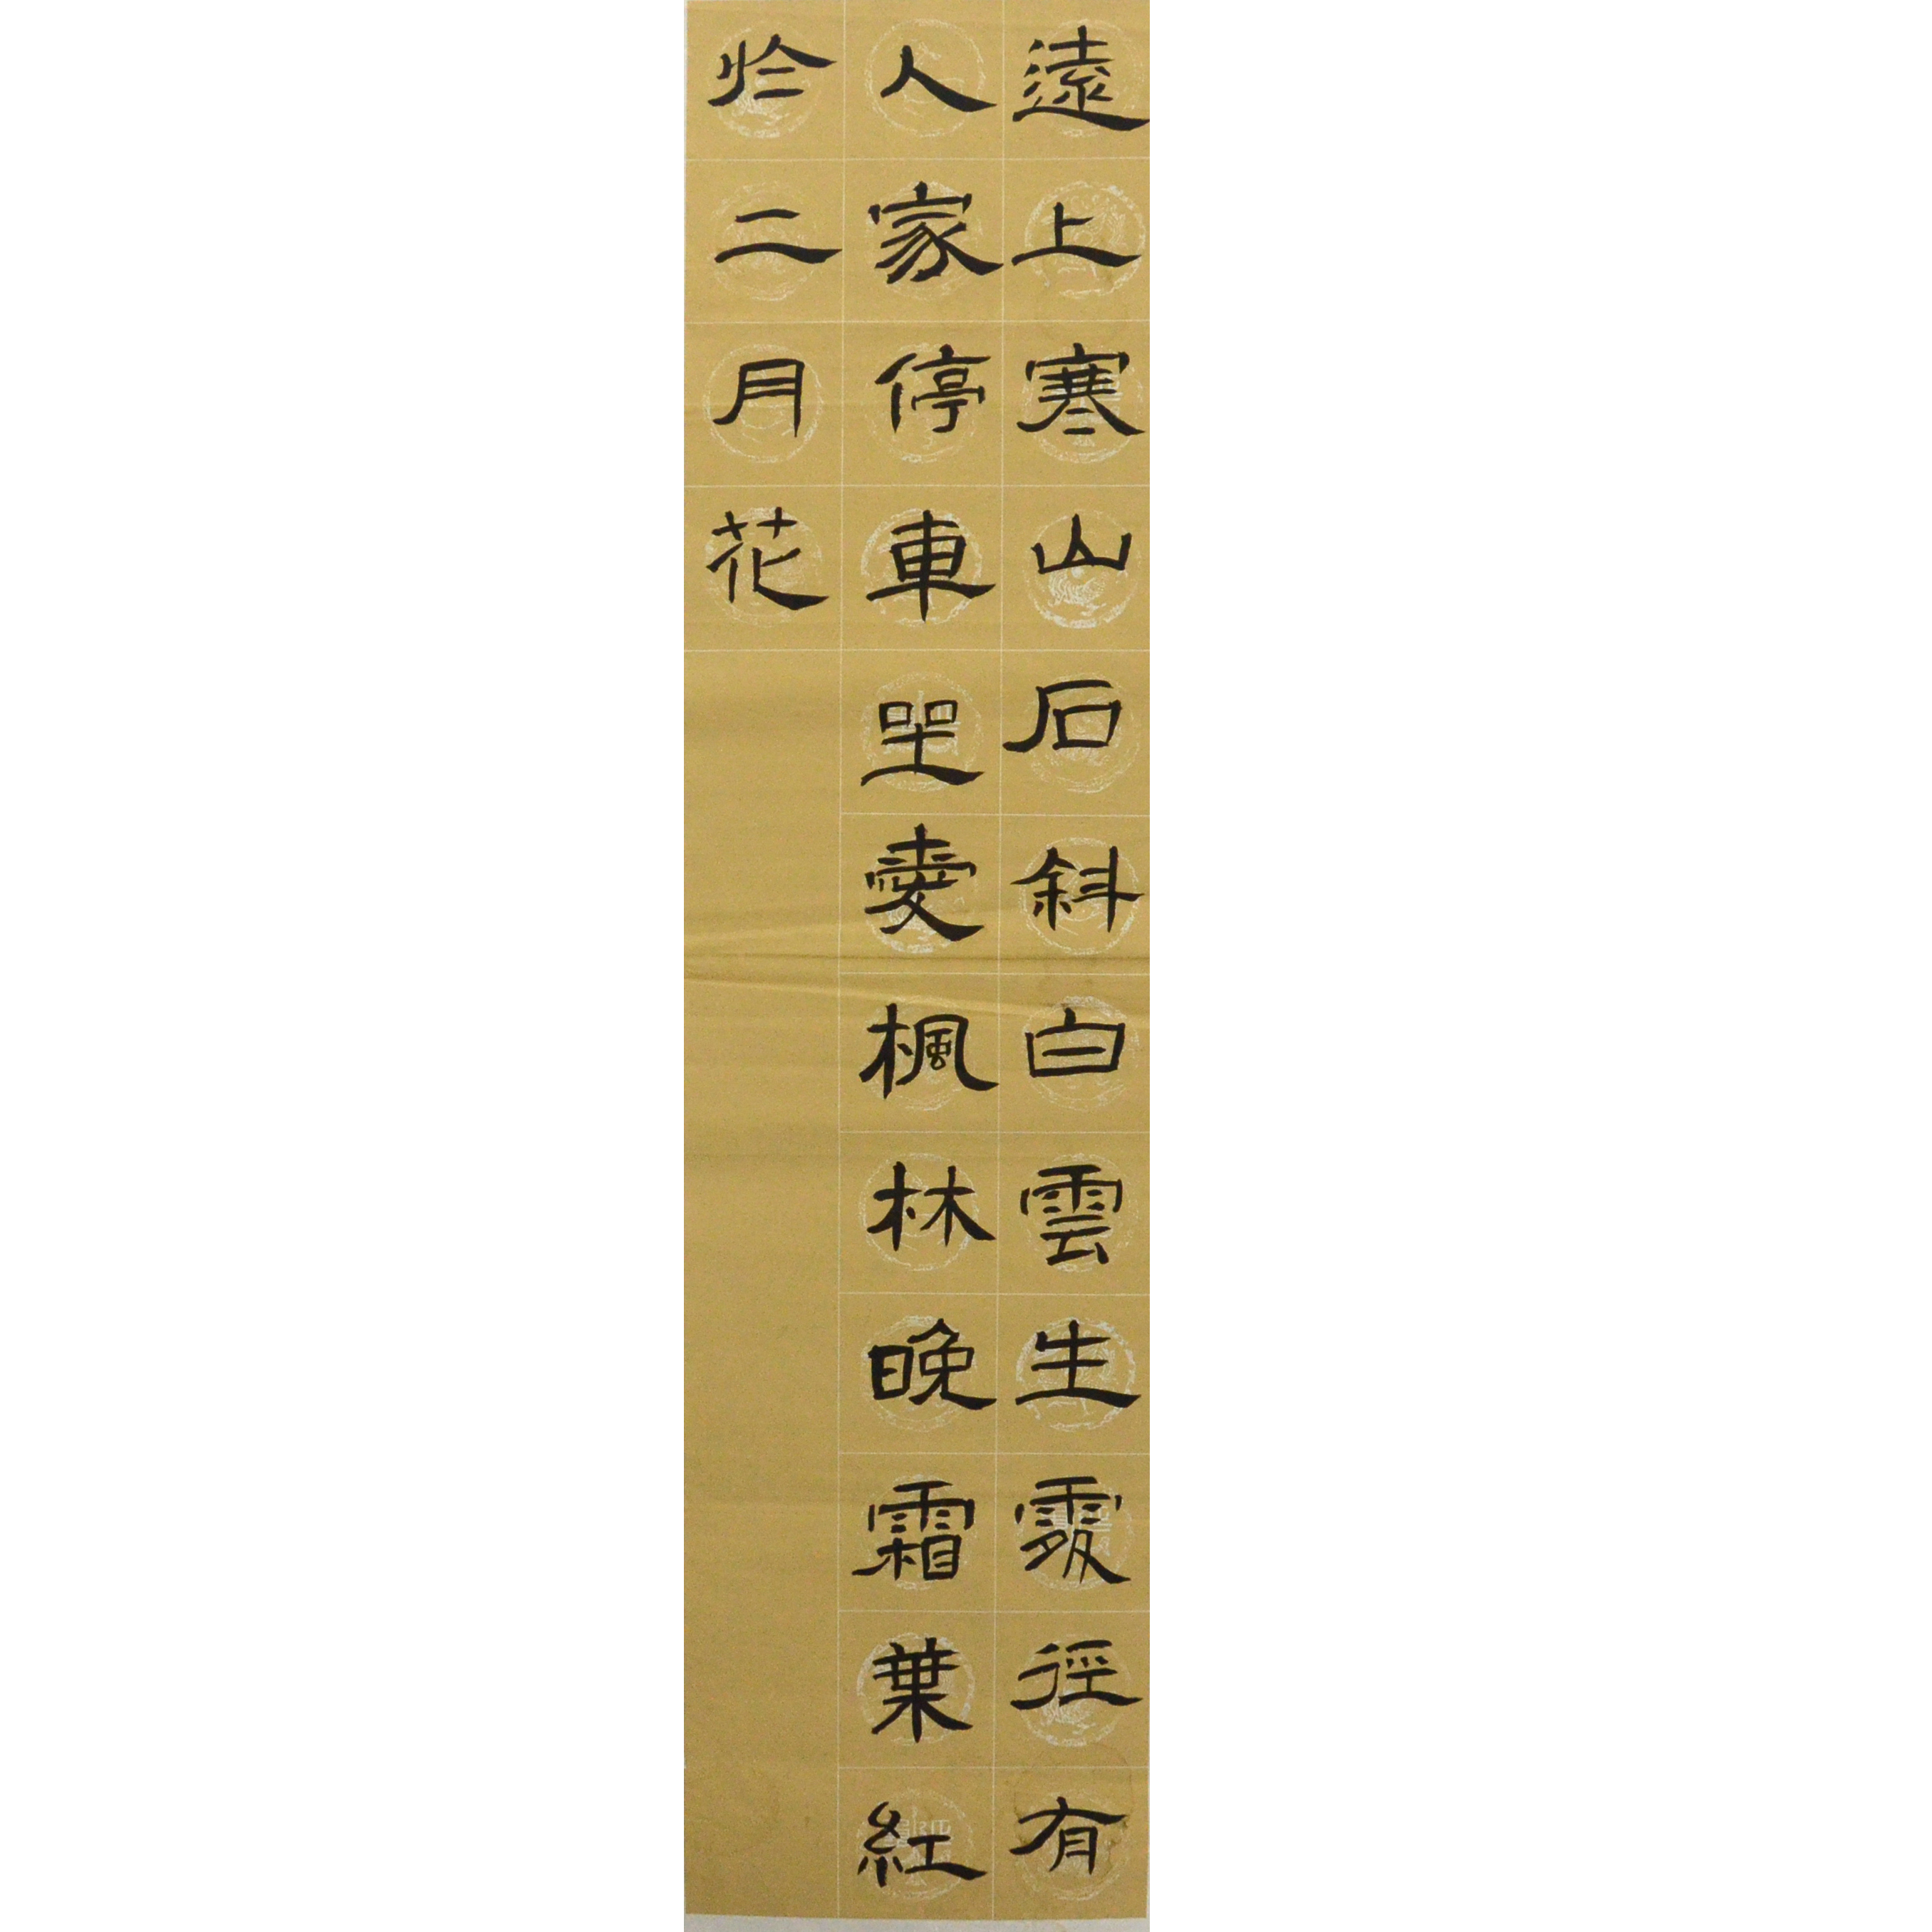 遠上寒山石斜白雲生處徑有
人家停車坐愛楓林晚霜葉紅
於二月花